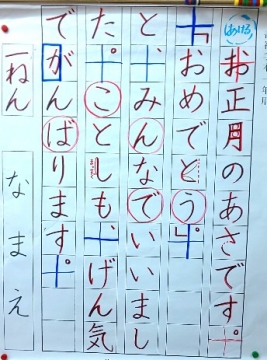 お正月のあさです。
「おめでとう。」
と、みんなでいいまし
た。ことしも、げん気
でがんばります。
一ねん なまえ